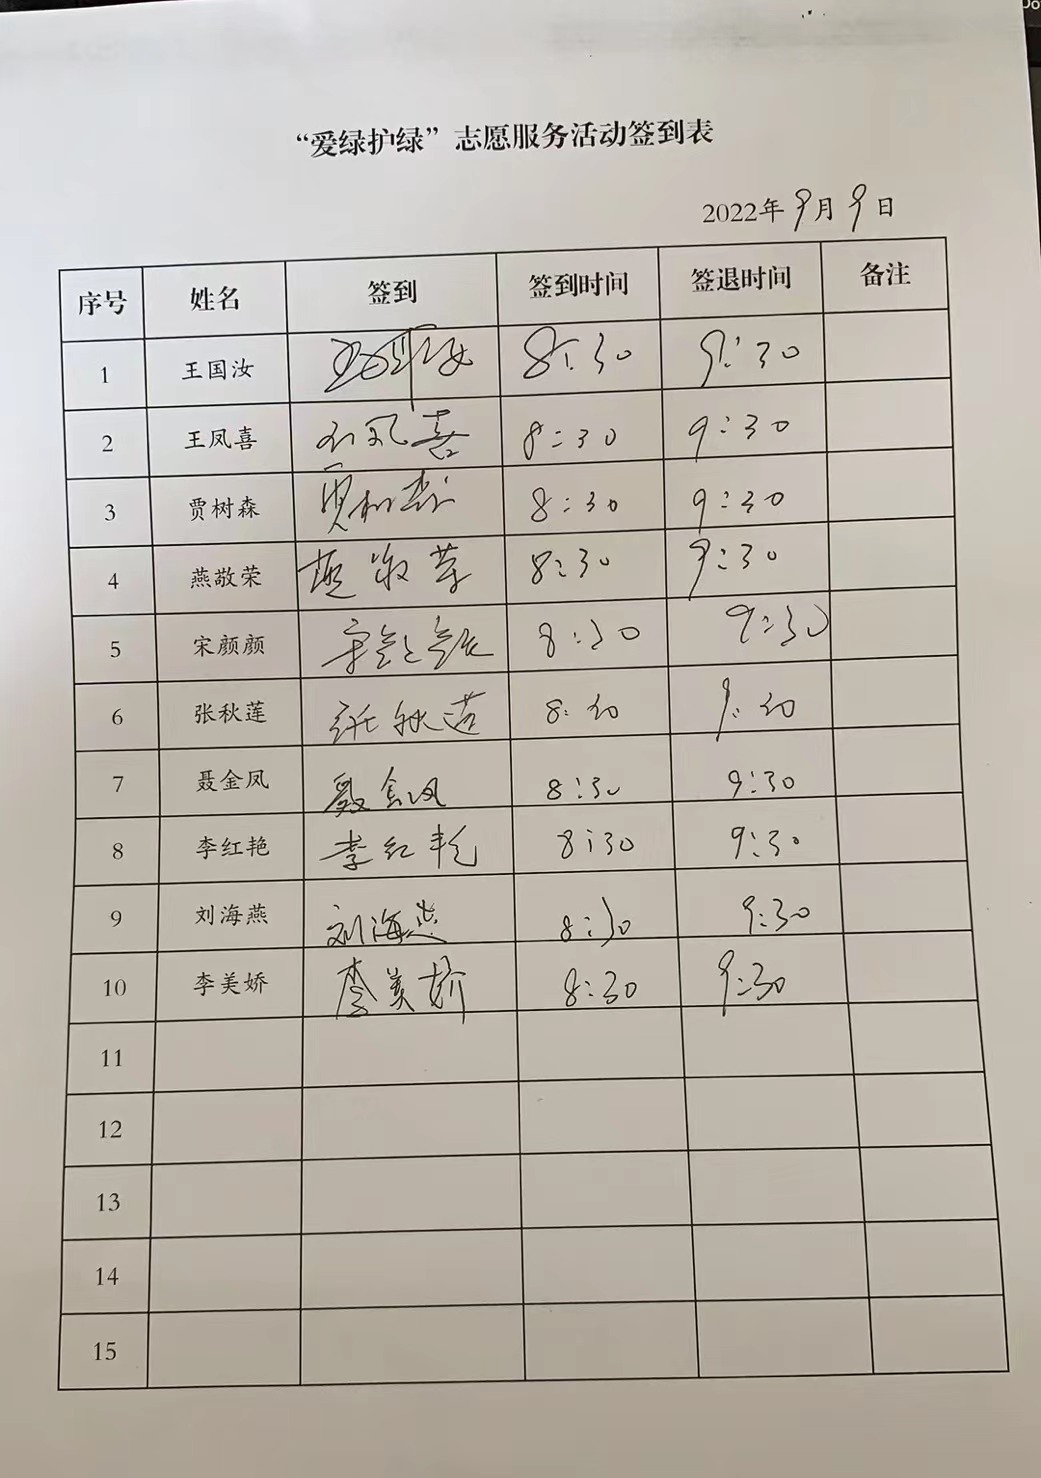 “爱绿护绿”志愿服务活动签到表
2022年9月9日
序号 姓名 签到 签到时间 签退时间 备注
1 王国汝 王国汝 8:30 9:30
2 王凤喜 王凤喜 8:30 9:30
3 贾树森 贾树森 8:30 9:30
4 燕敬荣 燕敬荣 8:30 9:30
5 宋颜颜 宋颜颜 8:30 9:30
6 张秋莲 张秋莲 8:30 9:30
7 聂金凤 聂金凤 8:30 9:30
8 李红艳 李红艳 8:30 9:30
9 刘海燕 刘海燕 8:30 9:30
10 李美娇 李美娇 8:30 9:30
11
12
13
14
15